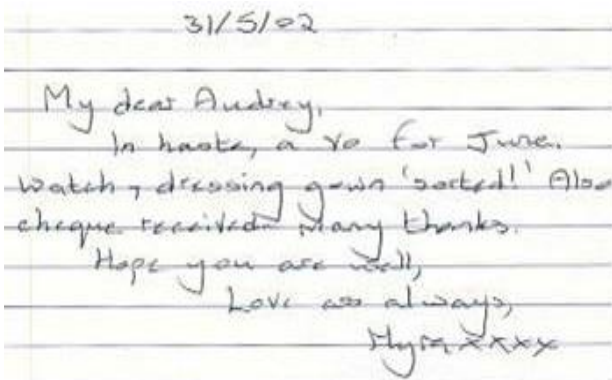 31/5/02
My dear Audrey,
In haste, a VO for June.
Watch, dressing gown 'sorted!' Also
cheque received. Many thanks.
Hope you are well,
Love as always,
Myra xxxx